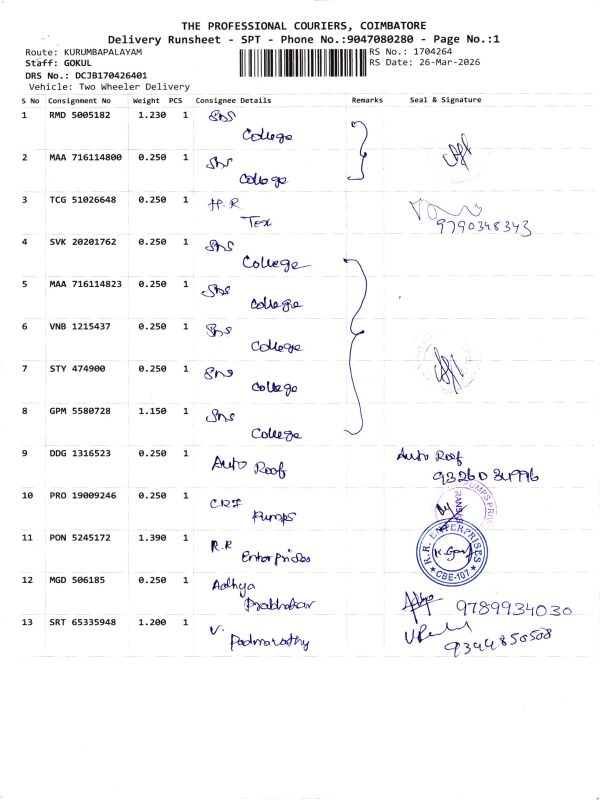 THE PROFESSIONAL COURIERS, COIMBATORE
Delivery Runsheet - SPT - Phone No.:9047080280 - Page No.:1
Route: KURUMBAPALAYAM RS No.: 1704264
Staff: GOKUL RS Date: 26-Mar-2026
DRS No.: DCJB170426401
Vehicle: Two Wheeler Delivery
S No Consignment No Weight PCS Consignee Details Remarks Seal & Signature
1 RMD 5005182 1.230 1 SNS
College
2 MAA 716114800 0.250 1 SNS
College
3 TCG 51026648 0.250 1 H.R
Tex
9790348343
4 SVK 20201762 0.250 1 SNS
College
5 MAA 716114823 0.250 1 SNS
College
6 VNB 1215437 0.250 1 SNS
College
7 STY 474900 0.250 1 SNS
College
8 GPM 5580728 1.150 1 SNS
College
9 DDG 1316523 0.250 1 Auto Roof Auto Roof
93260 84996
10 PRO 19009246 0.250 1 CRI
Pumps
11 PON 5245172 1.390 1 R.R
Enterprises
R.R. ENTERPRISES
CBE-107
12 MGD 506185 0.250 1 Adhya
Prabhakar
9789934030
13 SRT 65335948 1.200 1 V.
Padmavathy
9344850508